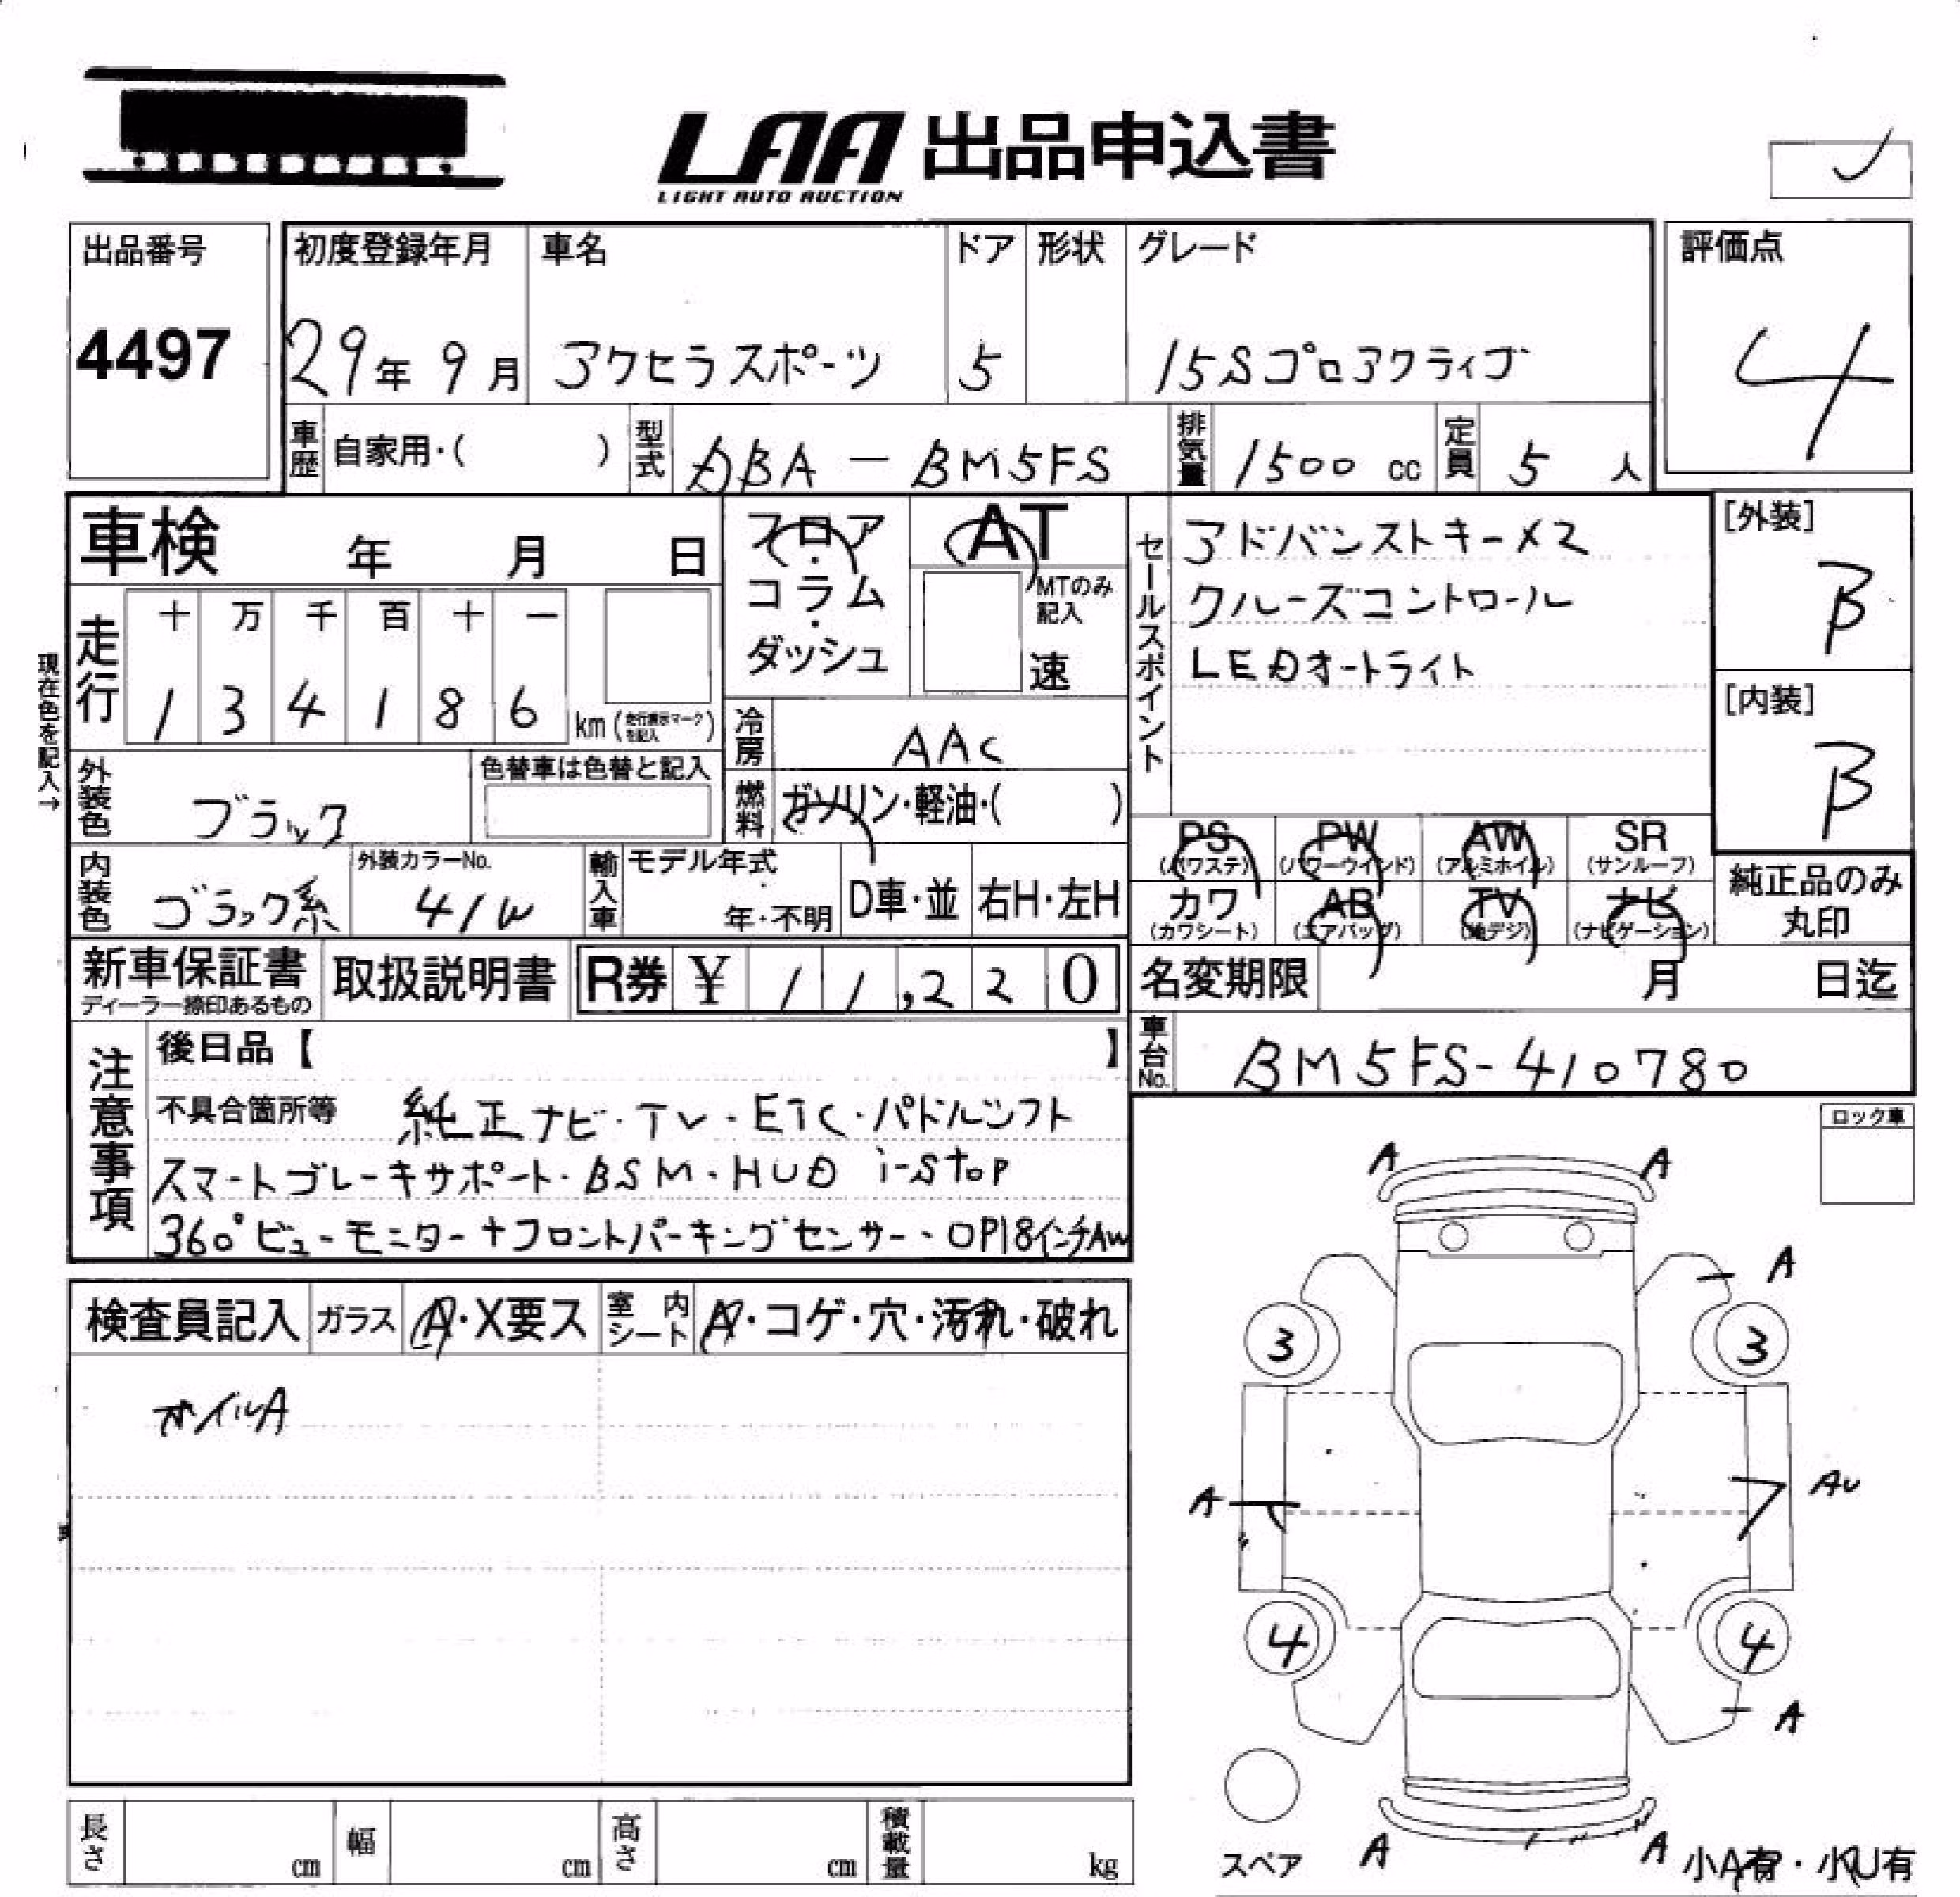 LAA 出品申込書
LIGHT AUTO AUCTION
出品番号
4497
初度登録年月
29年 9月
車名
アクセラスポーツ
ドア
5
形状
グレード
15Sプロアクティブ
評価点
4
車歴 自家用・( )
型式 DBA - BM5FS
排気量 1500 cc
定員 5 人
車検 年 月 日
走行
十 万 千 百 十 一
1 3 4 1 8 6 km (走行表示マークを記入)
現在色を記入→
外装色 ブラック
色替車は色替と記入
内装色 ブラック系
外装カラーNo.
41W
フロア・コラム・ダッシュ
AT
MTのみ記入
速
冷房 AAC
燃料 ガソリン・軽油・( )
輸入車 モデル年式
年・不明
D車・並
右H・左H
セールスポイント
アドバンストキー×2
クルーズコントロール
LEDオートライト
[外装]
B
[内装]
B
PS (パワステ)
PW (パワーウインド)
AW (アルミホイル)
SR (サンルーフ)
カワ (カワシート)
AB (エアバッグ)
TV (地デジ)
ナビ (ナビゲーション)
純正品のみ丸印
新車保証書
ディーラー捺印あるもの
取扱説明書
R券 ¥ 11,220
名変期限 月 日迄
車台No. BM5FS-410780
注意事項
後日品【 】
不具合箇所等 純正ナビ・TV・ETC・パドルシフト
スマートブレーキサポート・BSM・HUD i-stop
360°ビューモニター+フロントパーキングセンサー・OP18インチAW
ロック車
検査員記入 ガラス A・X要ス 室内シート A・コゲ・穴・汚れ・破れ
ホイルA
A A
A
3 3
A AU
4 4
A
A A
スペア
小A有・小U有
長さ cm 幅 cm 高さ cm 積載量 kg